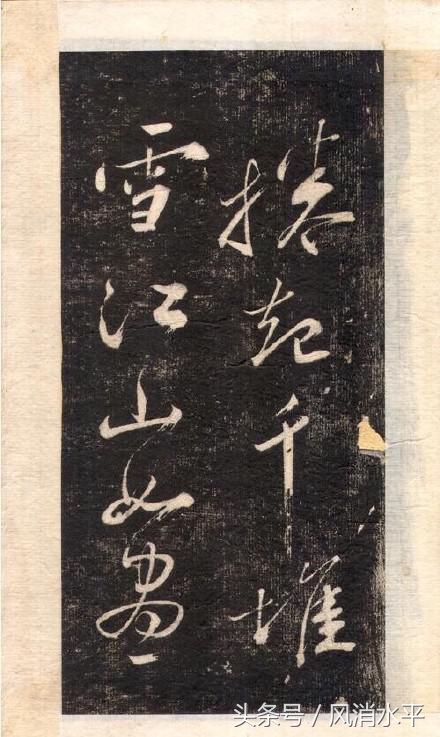 捲起千堆
雪江山如畫
头条号 / 风消水平